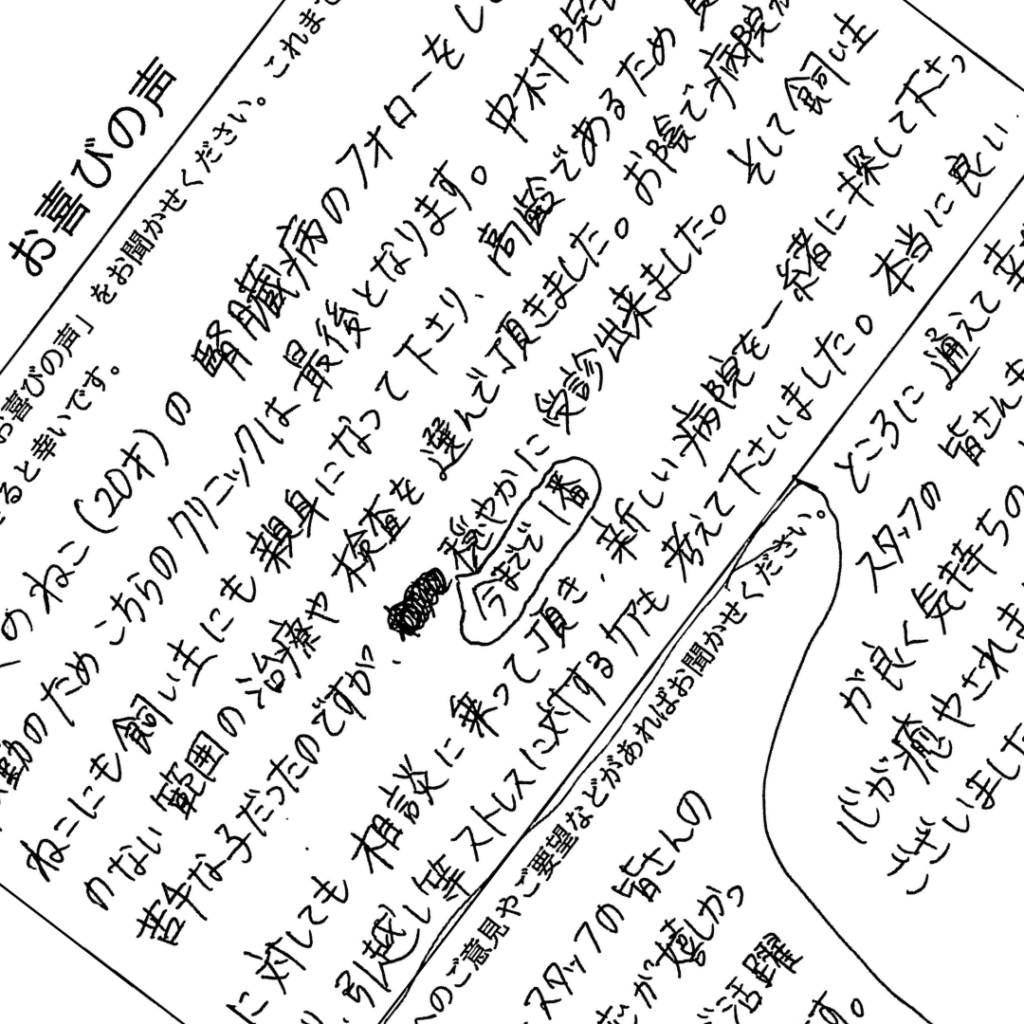 お喜びの声
お喜びの声」をお聞かせください。これませ
ると幸いです。
のねこ(20才)の 腎臓病のフォローをし
動のためこちらのクリニックは最後となります。中村院
ねこにも飼い主にも親身になって下さり、高齢であるため
のない範囲の治療や検査を選んで頂きました。お陰で病院が
苦手な子だったのですが、穏やかに受診出来ました。そして飼い主
今までで一番
に対しても相談に乗って頂き、新しい病院を一緒に探して下さっ
引越し等ストレスに対するケアも考えて下さいました。本当に良い
ところに通えて幸
スタッフの皆さんも
が良く気持ちの
心が癒やされま
ございました
のご意見やご要望などがあればお聞かせください。
スタッフの皆さんの
が嬉しかっ
ご活躍
す。